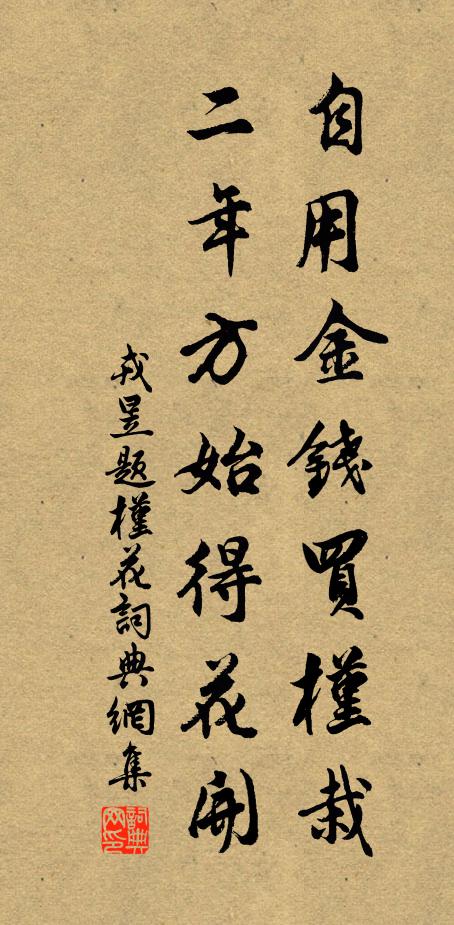 自用金錢買槿栽
二年方始得花開
戎昱題槿花詞典網集
詞典網印